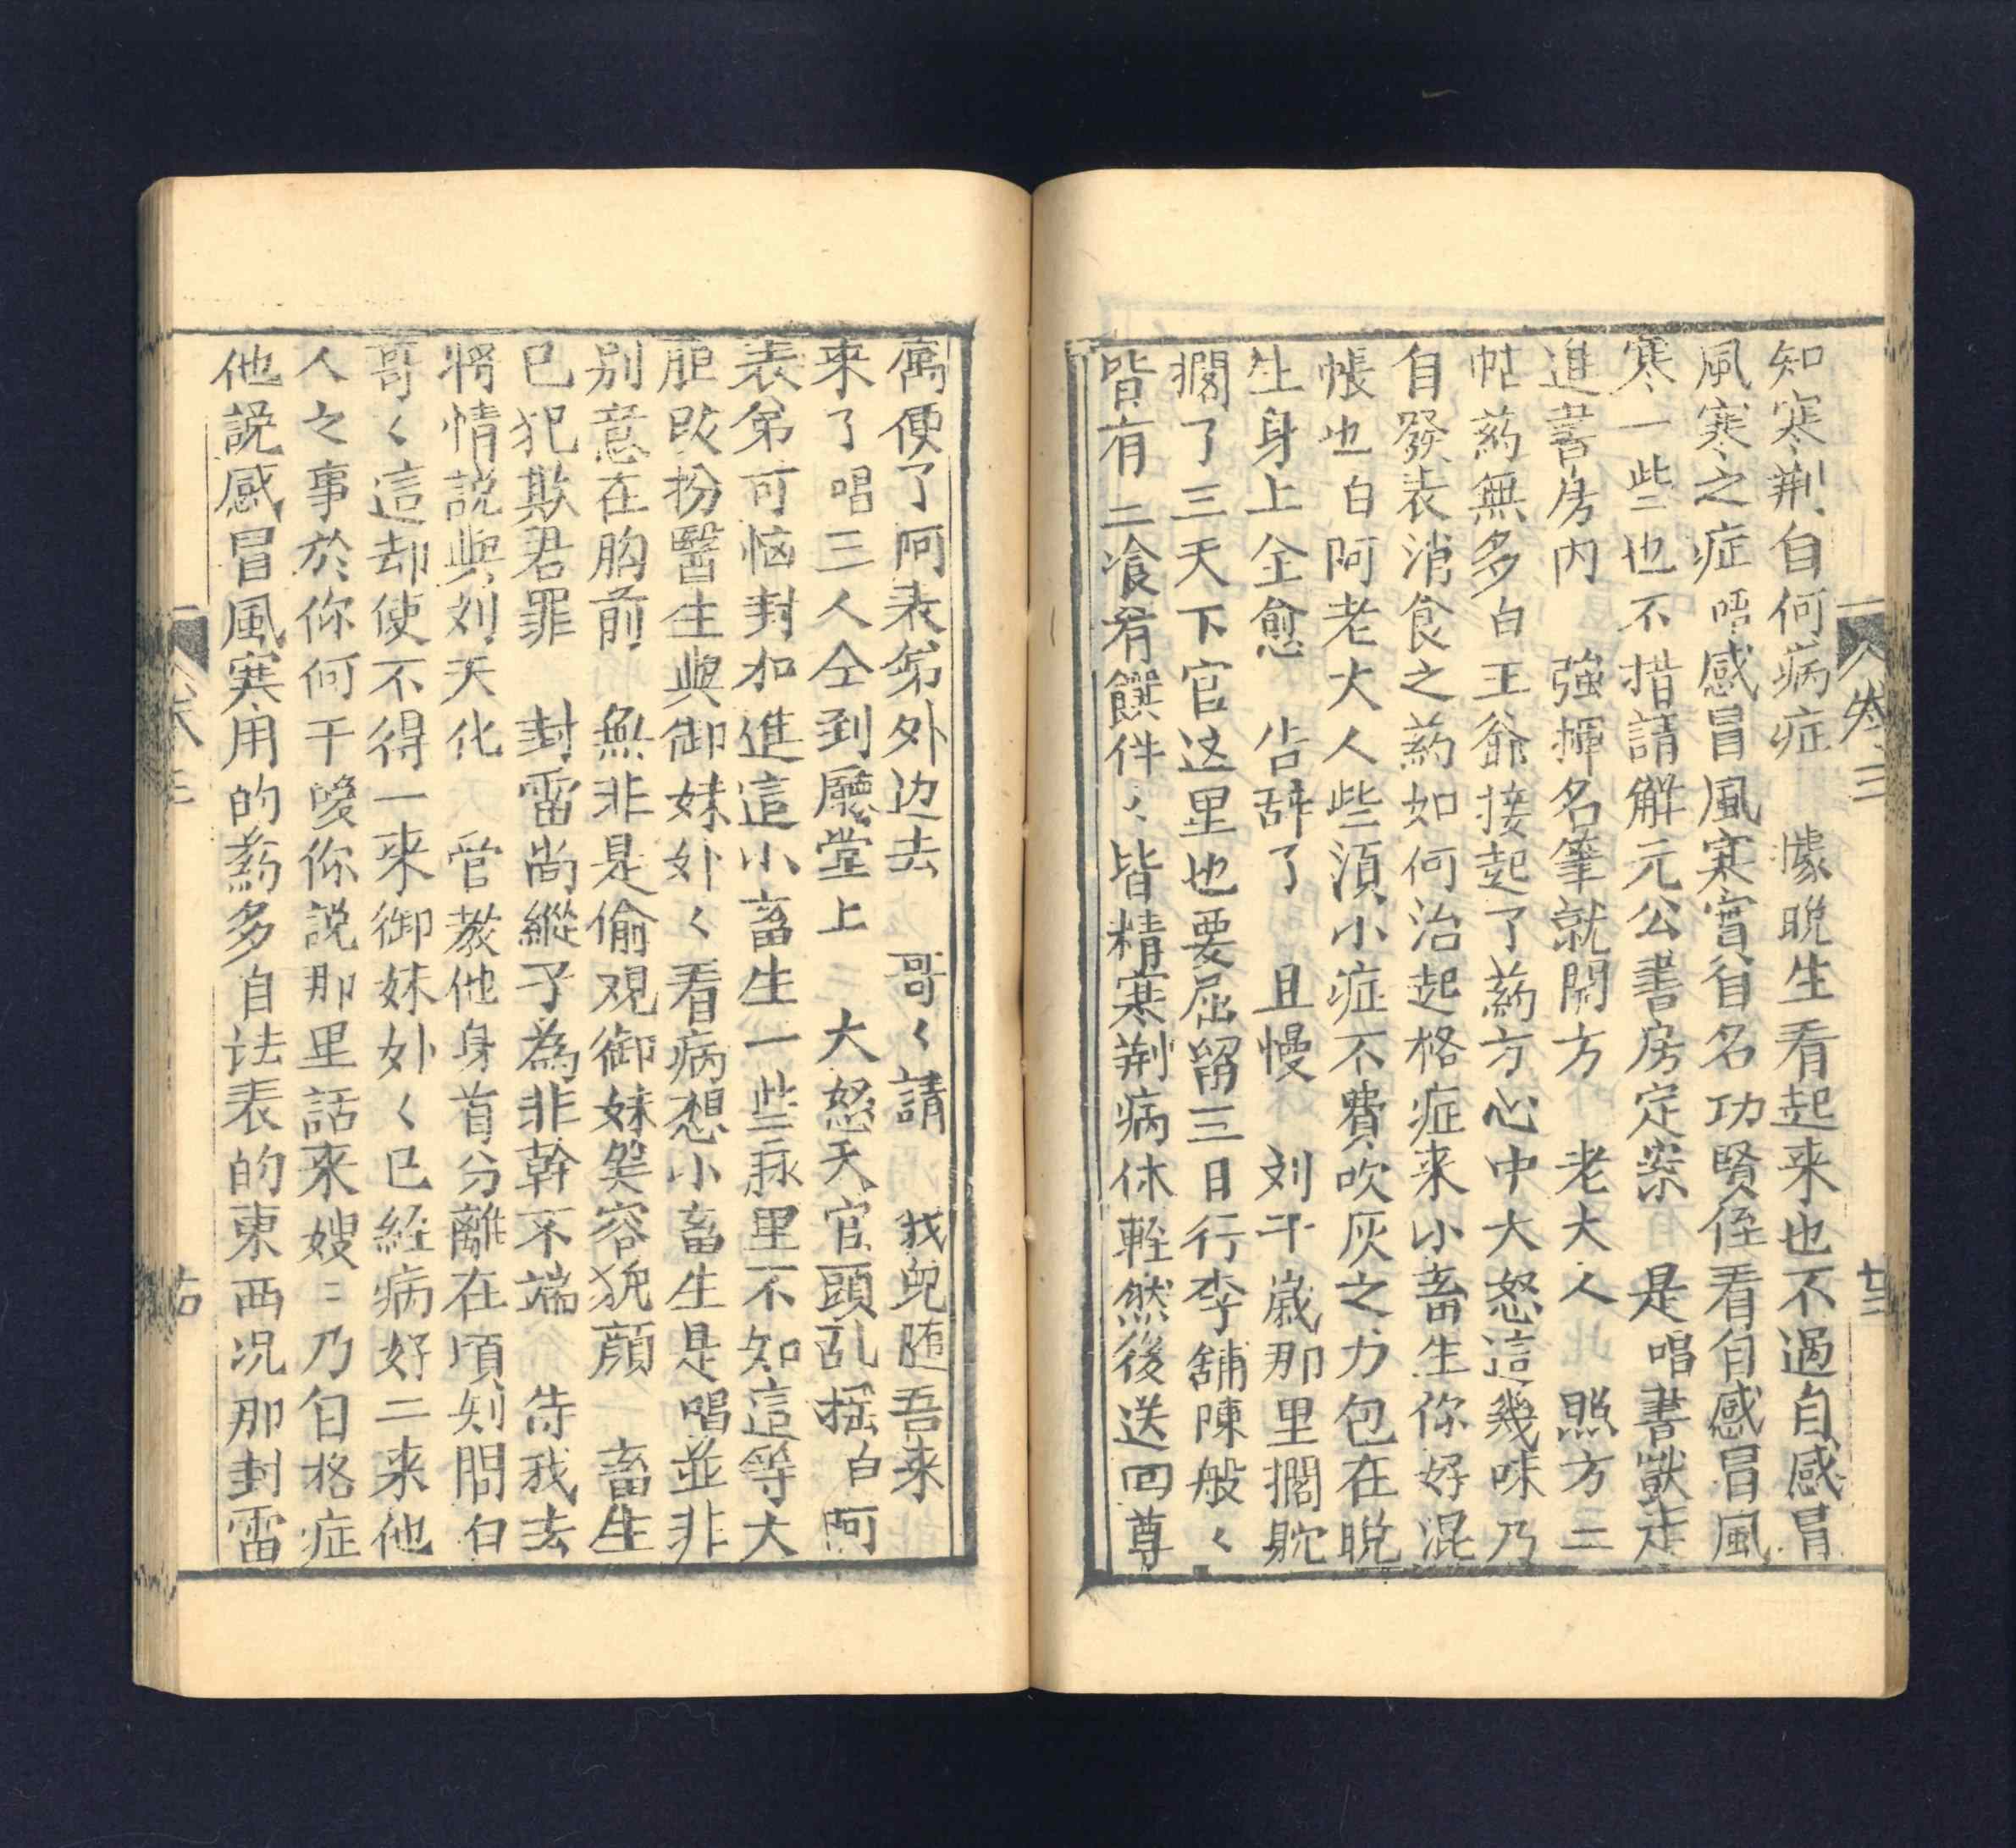 卷三 廿三
知寒荆自何病症 據晚生看起来也不過自感冒
風寒之症唔感冒風寒實自名功賢侄看自感冒風
寒一些也不措請解元公書房定案 是唱書獃走
進書房内 強揮名筆就開方 老大人 照方二
帖葯無多白王爺接起了葯方心中大怒這幾味乃
自發表消食之葯如何治起格症来小畜生你好混
帳也白阿老大人些湏小症不費吹灰之力包在晚
生身上全愈 告辞了 且慢 刘千歲那里擱躭
擱了三天下官这里也要屈留三日行李舖陳般〱
皆有二飡肴饌件〱皆精寒荆病体輊然後送回尊
寓便了阿表弟外边去 哥〱請 我兒随吾来
来了唱三人仝到廳堂上 大怒天官頭乱摇白阿
表弟可恼封加進這小畜生一些脉里不知這等大
胆改扮醫生與御妹妎〱看病想小畜生是唱並非
别意在胸前 無非是偷观御妹美容貌顔 畜生
已犯欺君罪 封雷尚縱子為非幹不端 待我去
将情説與刘天化 管教他身首分離在頃刻間白
哥〱這却使不得一来御妹妎〱已経病好二来他
人之事於你何干嗳你説那里話来嫂〻乃自格症
他説感冒風寒用的葯多自法表的東西况那封雷